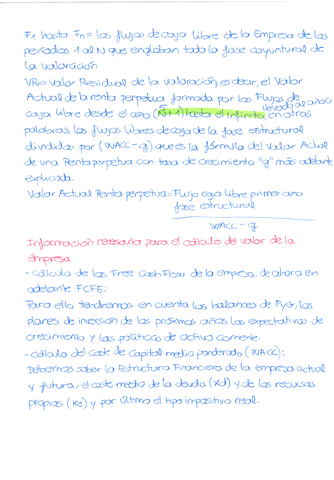 F1 hasta Fn = los flujos de caja libre de la Empresa de los
periodos 1 al N que engloban toda la fase coyuntural de
la valoración
VRn = Valor Residual de la valoración, es decir, el Valor
Actual de la renta perpetua formada por los Flujos de
caja libre desde el año (n+1) hasta el infinito llevado al año n en otras
palabras los flujos libres de caja de la fase estructural
divididos por (WACC-g) que es la fórmula del Valor Actual
de una Renta perpetua con tasa de crecimiento "g" más adelante
explicada.
Valor Actual Renta perpetua = Flujo caja libre primer año
fase estructural
WACC - g
Información necesaria para el cálculo del valor de la
empresa
- Cálculo de los Free Cash Flow de la empresa, de ahora en
adelante FCFE:
Para ello tendremos en cuenta los balances de PyG, los
planes de inversión de los próximos años, las expectativas de
crecimiento y las políticas de activo corriente.
- Cálculo del coste de capital medio ponderado (WACC):
Debemos saber la Estructura Financiera de la empresa actual
y futura, el coste medio de la deuda (Kd) y de los recursos
propios (Ke) y por último el tipo impositivo real.